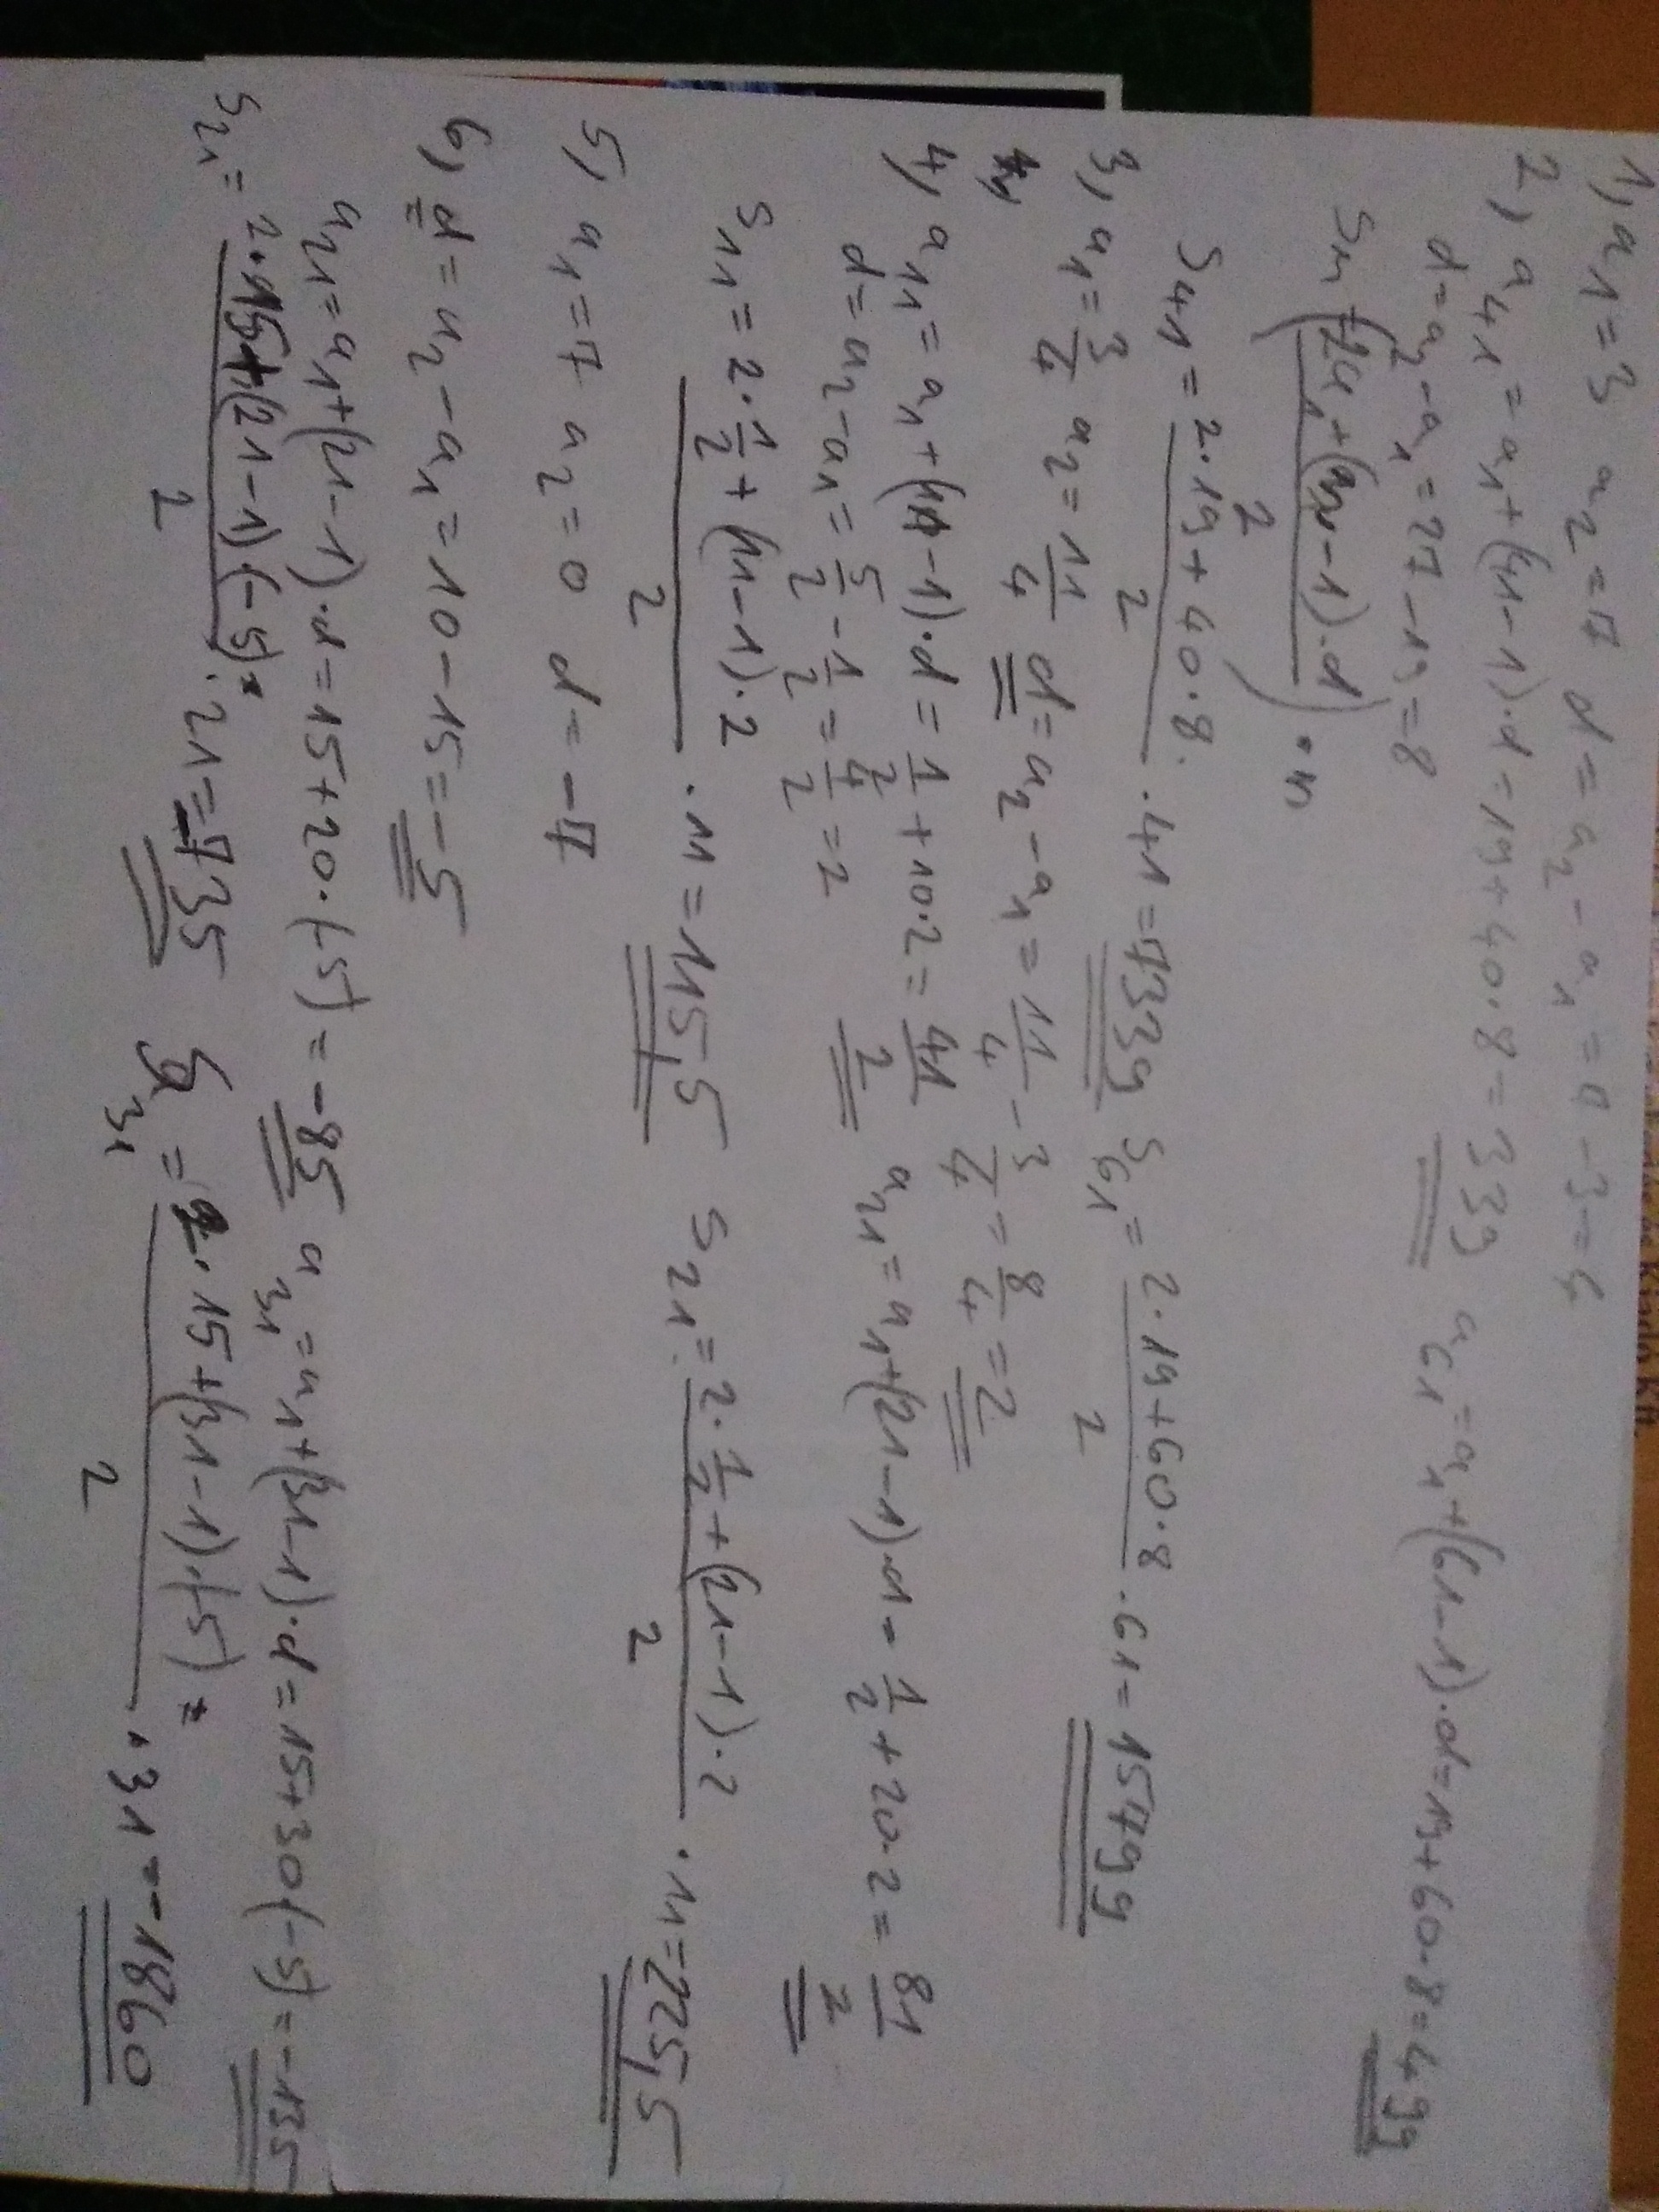 1, a₁=3 a₂=7 d=a₂-a₁=7-3=4
2, a₄₁=a₁+(41-1)·d=19+40·8=339 a₆₁=a₁+(61-1)·d=19+60·8=499
d=a₂-a₁=27-19=8
Sₙ=(2a₁+(n-1)·d)·n
2
S₄₁=2·19+40·8·41=7339 S₆₁=2·19+60·8·61=15799
2 2
3, a₁=3/4 a₂=11/4 d=a₂-a₁=11/4-3/4=8/4=2
4, a₁₁=a₁+(11-1)·d=1/2+10·2=41/2 a₂₁=a₁+(21-1)·d=1/2+20·2=81/2
d=a₂-a₁=5/2-1/2=4/2=2
S₁₁=2·1/2+(11-1)·2·11=115,5 S₂₁=2·1/2+(21-1)·2·11=225,5
2 2
5, a₁=7 a₂=0 d=-7
6, d=a₂-a₁=10-15=-5
a₂₁=a₁+(21-1)·d=15+20·(-5)=-85 a₃₁=a₁+(31-1)·d=15+30(-5)=-135
S₂₁=2·15+(21-1)·(-5)·21=-735 S₃₁=2·15+(31-1)·(-5)·31=-1860
2 2
Kiadó Kft.